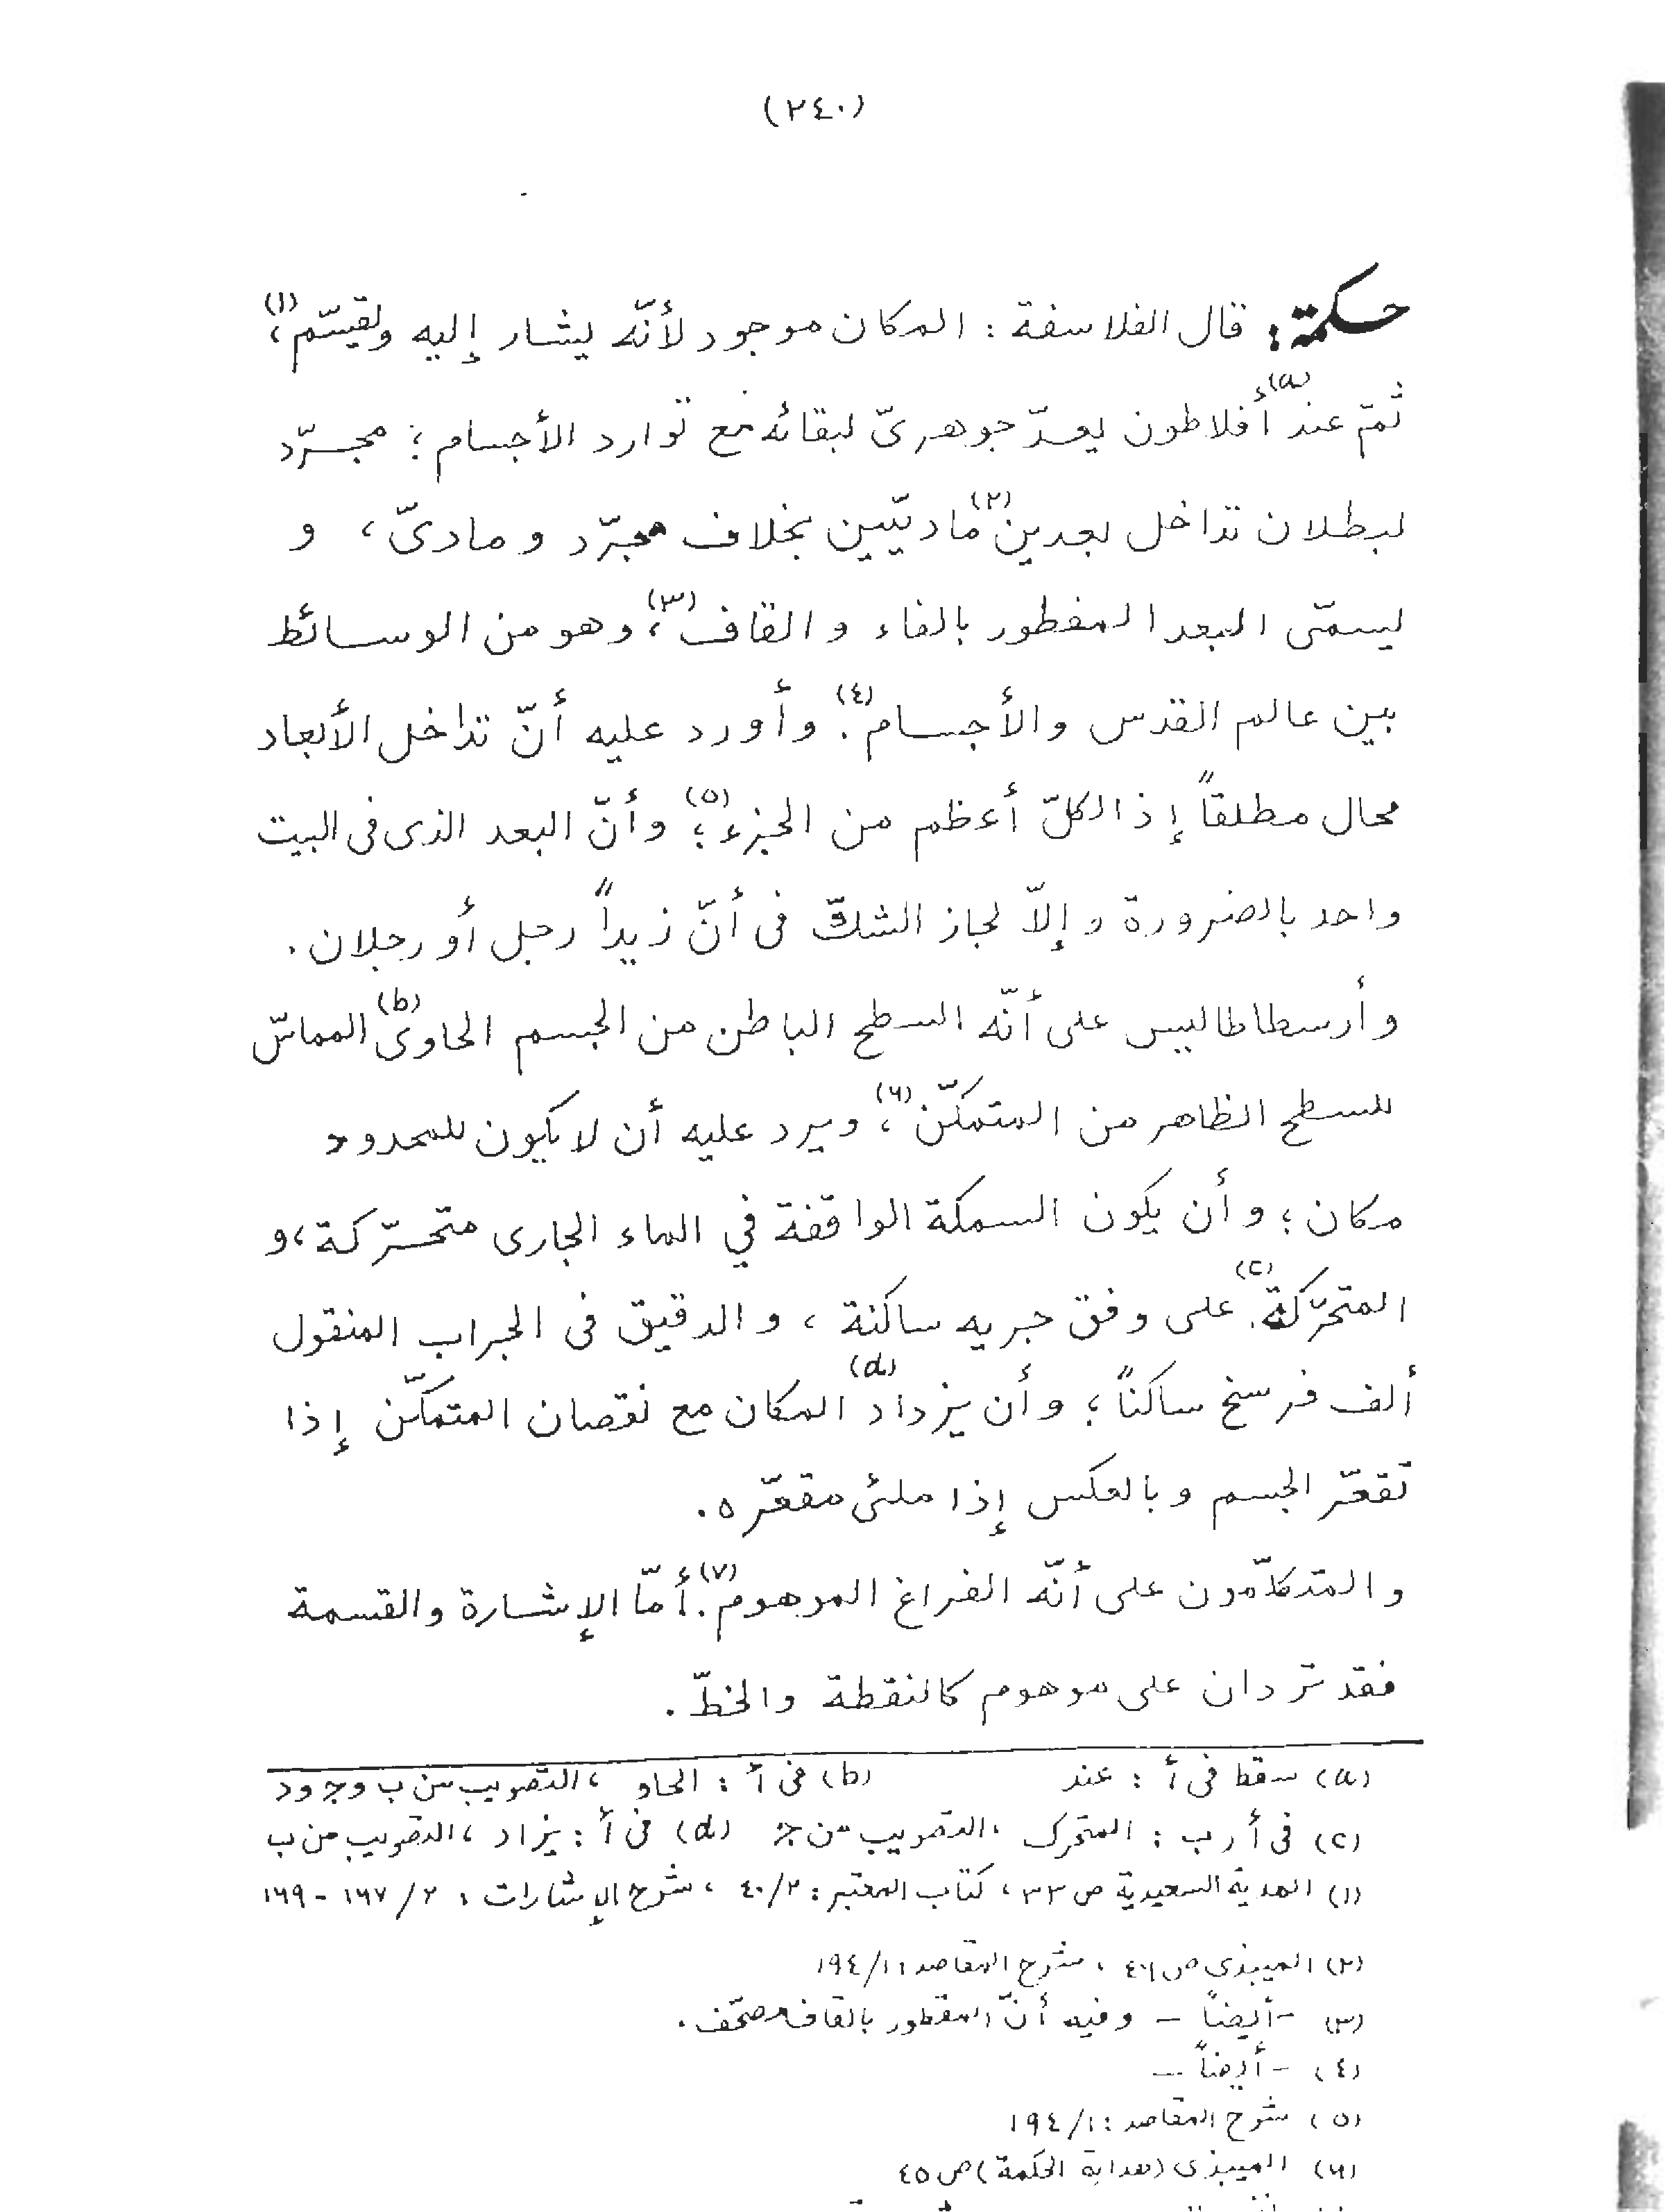 (٢٤٠)
حكمة: قال الفلاسفة: المكان موجود لأنّه يشار إليه ويقسّم(١)،
ثمّ عند(a) أفلاطون بعدٌ جوهرىّ لبقائه مع توارد الأجسام؛ مجرّد
لبطلان تداخل بعدين(٢) ماديّين بخلاف مجرّد ومادىّ، و
يسمّى البعد المفطور بالفاء والقاف(٣)، وهو من الوسائط
بين عالم القدس والأجسام(٤). وأورد عليه أنّ تداخل الأبعاد
محال مطلقاً إذ الكلّ أعظم من الجزء(٥)؛ وأنّ البعد الذى فى البيت
واحد بالضرورة وإلاّ لجاز الشكّ فى أنّ زيداً رجل أو رجلان.
وأرسطاطاليس على أنّه السطح الباطن من الجسم الحاوى(b) المماسّ
للسطح الظاهر من المتمكّن(٦)، ويرد عليه أن لا يكون للمحدود
مكان؛ وأن يكون السمكة الواقفة في الماء الجارى متحرّكة، و
المتحرّكة(c) على وفق جريه ساكنة، والدقيق فى الجراب المنقول
ألف فرسخ ساكناً؛ وأن يزداد(d) المكان مع نقصان المتمكّن إذا
تقعّر الجسم وبالعكس إذا ملئ مقعّره.
والمتكلّمون على أنّه الفراغ الموهوم(٧). أمّا الإشارة والقسمة
فقد تردان على موهوم كالنقطة والخطّ.
(a) سقط فى أ: عند (b) فى أ: الحاو، التصويب من ب وج ود
(c) فى أ وب: المتحرك، التصويب من ج (d) فى أ: يزاد، التصويب من ب
(١) الهدية السعيدية ص ٣٣، كتاب المعتبر: ٤٠/٢، شرح الإشارات: ١٦٧/٢ - ١٦٩
(٢) الميبذى ص ٤٦، شرح المقاصد ١٩٤/١
(٣) - أيضاً - وفيه أنّ المقطور بالقاف مصحّف.
(٤) - أيضاً -
(٥) شرح المقاصد: ١٩٤/١
(٦) الميبذى (هداية الحكمة) ص ٤٥